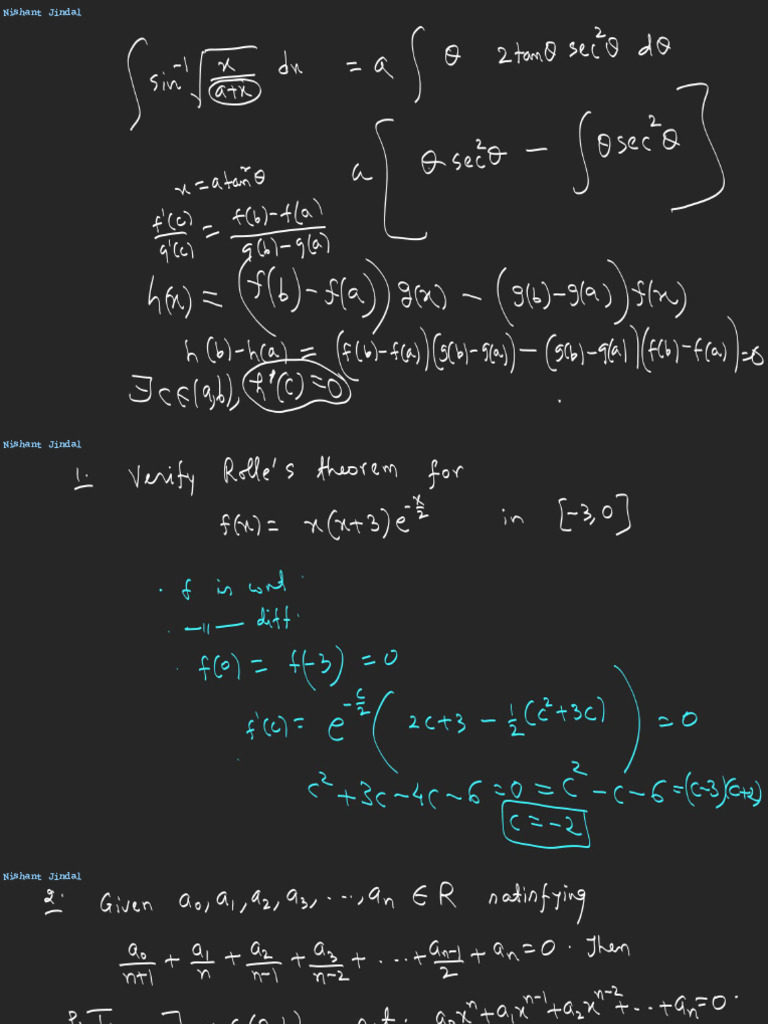 Nishant Jindal
∫ sin⁻¹ √(x/(a+x)) dx = a ∫ θ 2tanθ sec²θ dθ
a [ θ sec²θ − ∫ θ sec²θ ]
x = a tan²θ
f'(c)/g'(c) = (f(b)−f(a))/(g(b)−g(a))
h(x) = (f(b)−f(a)) g(x) − (g(b)−g(a)) f(x)
h(b)−h(a) = (f(b)−f(a))(g(b)−g(a)) − (g(b)−g(a))(f(b)−f(a)) = 0
∃ c ∈ (a,b), h'(c) = 0
Nishant Jindal
1. Verify Rolle's theorem for
f(x) = x(x+3)e^(−x/2) in [−3,0]
· f is cont.
· —〃— diff.
· f(0) = f(−3) = 0
f'(c) = e^(−c/2) ( 2c+3 − ½(c²+3c) ) = 0
c²+3c−4c−6=0 = c²−c−6=(c−3)(c+2)
c = −2
Nishant Jindal
2. Given a₀, a₁, a₂, a₃, ..., aₙ ∈ R satisfying
a₀/(n+1) + a₁/n + a₂/(n−1) + a₃/(n−2) + ... + aₙ₋₁/2 + aₙ = 0. Then
a₀xⁿ+a₁xⁿ⁻¹+a₂xⁿ⁻²+...+aₙ=0.